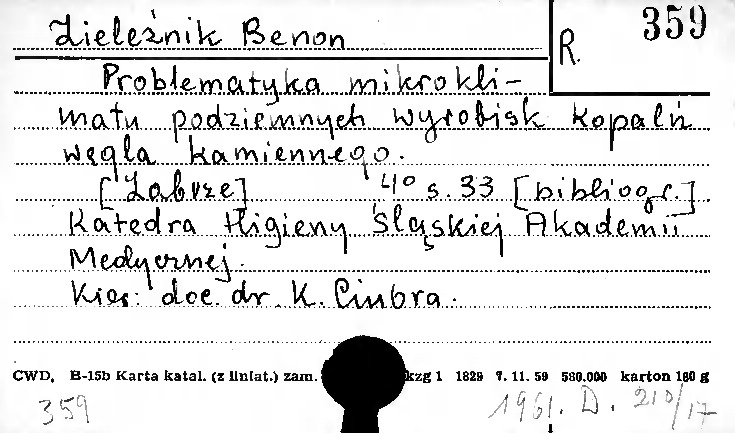 Zieleźnik Benon
R. 359
Problematyka mikrokli-
matu podziemnych wyrobisk kopalń
węgla kamiennego.
[Zabrze] 4° s. 33 [bibliogr.]
Katedra Higieny Śląskiej Akademii
Medycznej.
Kier: doc. dr. K. Ciubra.
CWD, B-15b Karta katal. (z liniat.) zam. kzg 1 1829 7. 11. 59 580.000 karton 180 g
359
1961. D. 210/17